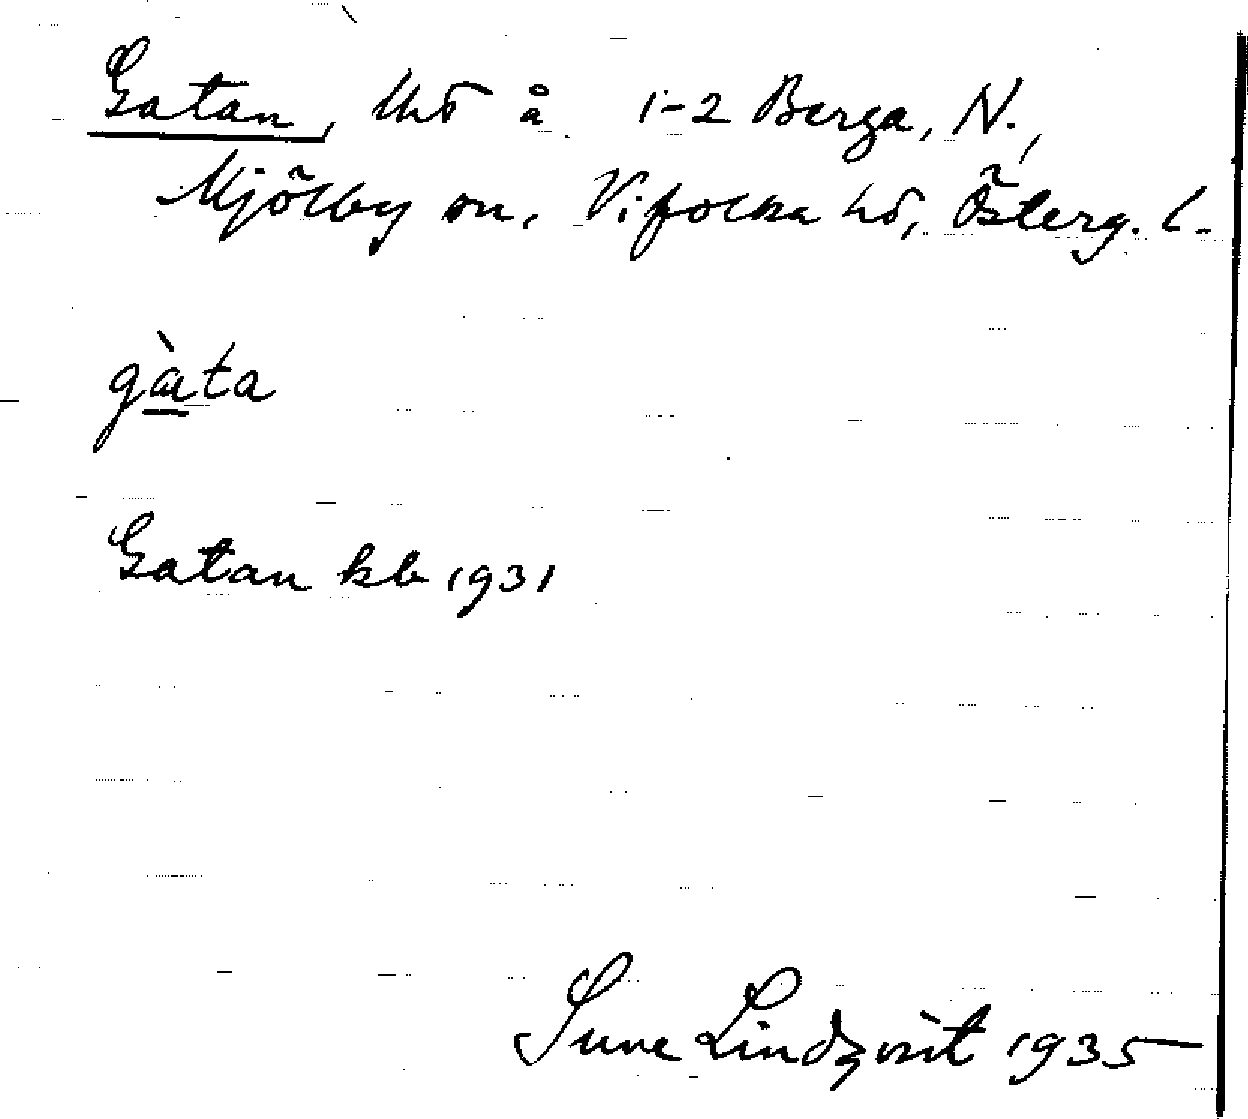 Gatan, lht å 1-2 Berga, N.,
Mjölby sn, Vifolka hd, Österg. l.
gàta
Gatan kb 1931
Sune Lindqvist 1935